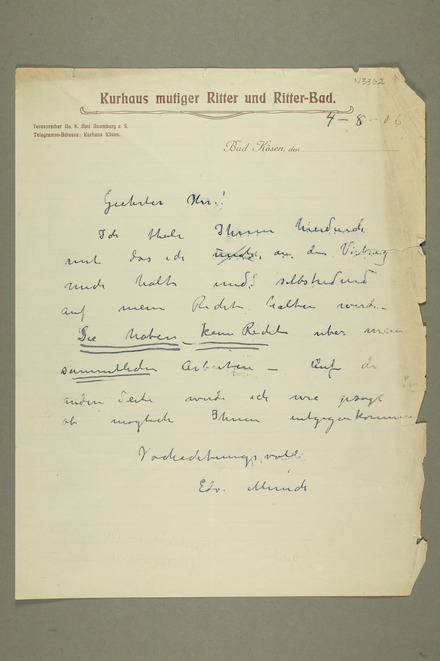 N 3362
Kurhaus mutiger Ritter und Ritter-Bad.
Fernsprecher No. 8. Amt Naumburg a. S.
Telegramm-Adresse: Kurhaus Kösen.
4 – 8 – 06
Bad Kösen, den
Geehrter Herr!
Ich theile Ihnen hierdurch
mit das ich an den Vertrag
mich halte und selbstredend
auf mein Recht halten werde –
Sie haben kein Recht über meine
sämmtlichen Arbeiten – Auf der
andern Seite werde ich wie gesagt
so möglich Ihnen entgegenkommen
Hochachtungsvoll
Edv. Munch